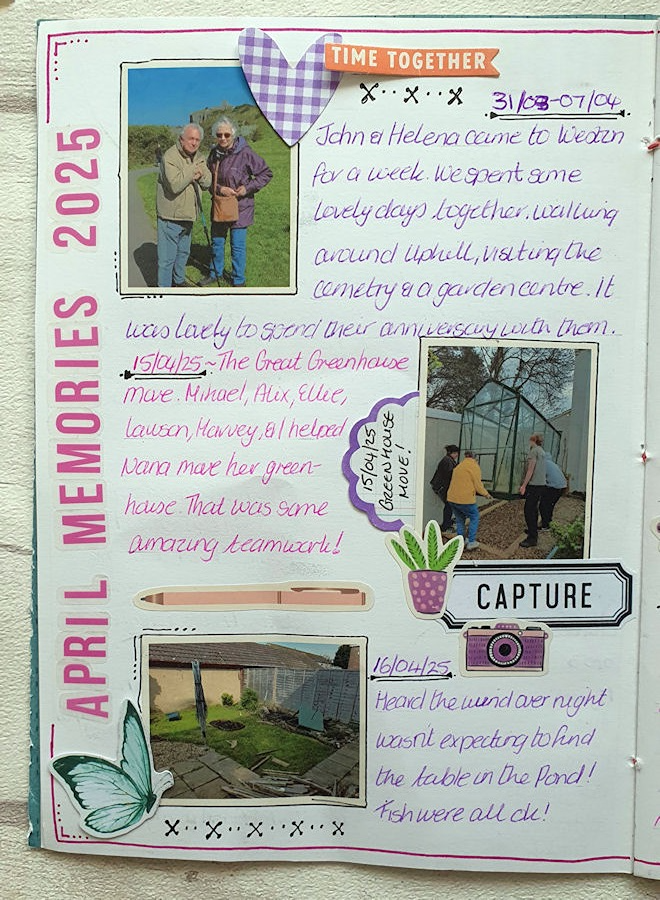 APRIL MEMORIES 2025
TIME TOGETHER
31/03-07/04
John & Helena came to Weston
for a week. We spent some
lovely days together, walking
around Uphill, visiting the
cemetry & a garden centre. It
was lovely to spend their anniversary with them.
15/04/25 ~ The Great Greenhouse
move. Mikael, Alix, Ellie,
Lawson, Harvey, & I helped
Nana move her green-
house. That was some
amazing teamwork!
15/04/25
GREENHOUSE
MOVE!
CAPTURE
16/04/25
Heard the wind over night
wasn't expecting to find
the table in the Pond!
Fish were all ok!